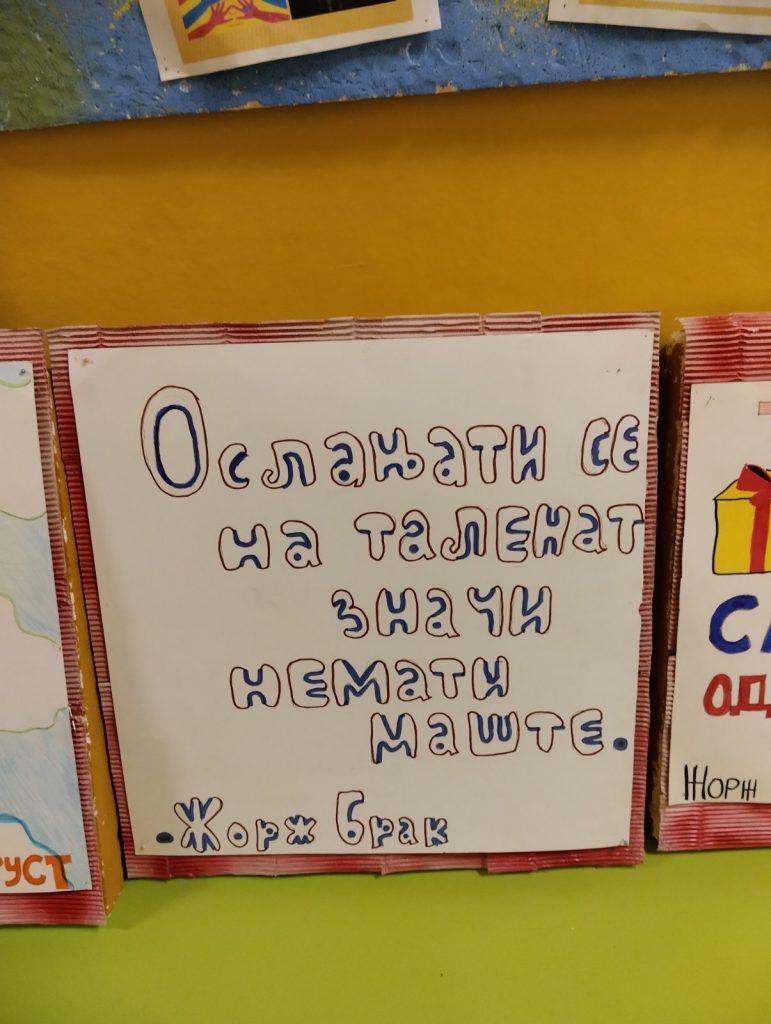 Ослањати се
на таленат
значи
немати
маште.
.Жорж Брак
Жорж